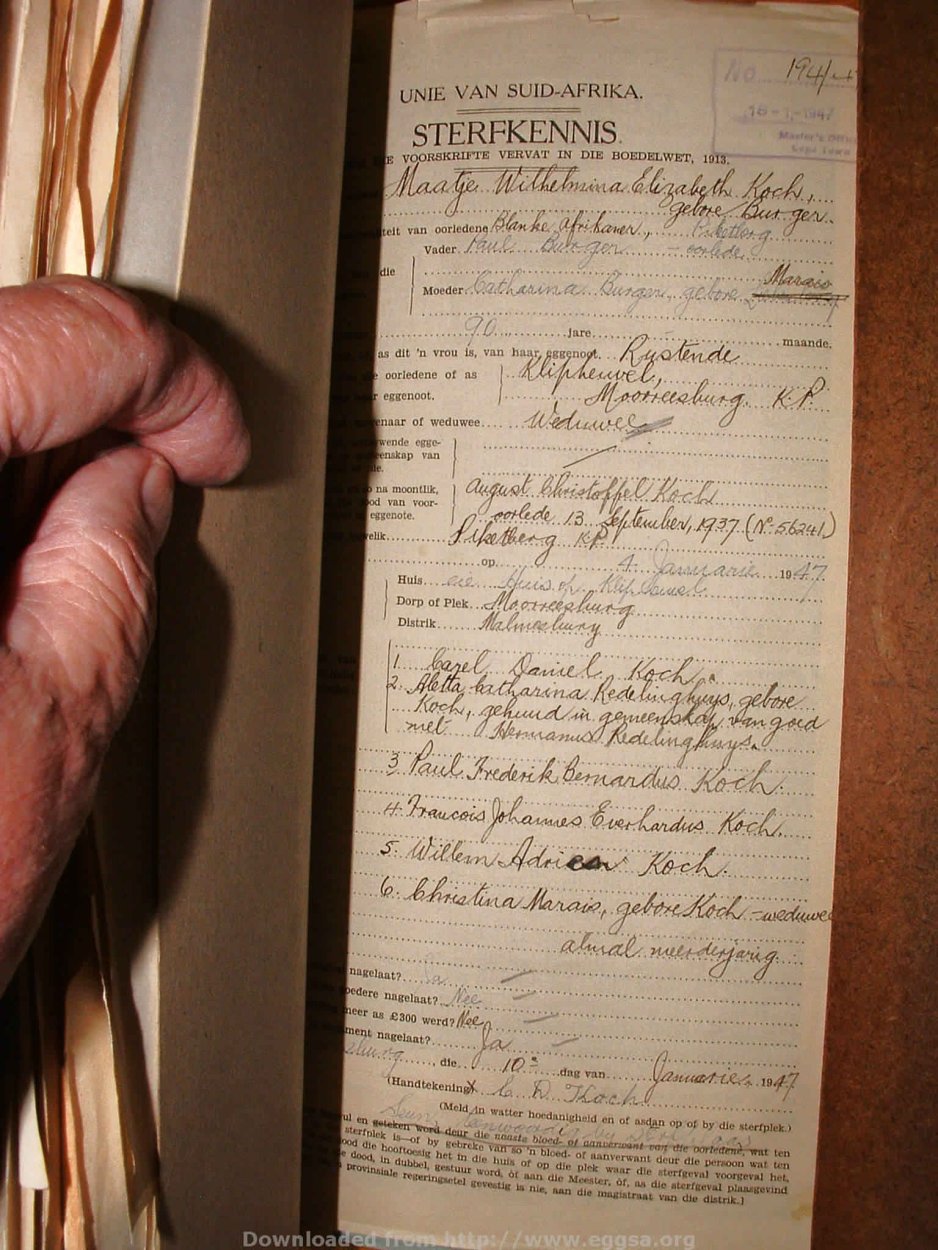 No. 194/47
UNIE VAN SUID-AFRIKA.
18-1-1947
Master's Office
Cape Town
STERFKENNIS.
VOORSKRIFTE VERVAT IN DIE BOEDELWET, 1913.
Maatje Wilhelmina Elizabeth Koch,
gebore Burger.
van oorledene Blanke Afrikaner, Piketberg
Vader Paul Burger - oorlede
die
Marais
Moeder Catharina Burger, gebore
90 jare maande.
as dit 'n vrou is, van haar eggenoot. Rustende
oorledene of as Klipheuvel,
eggenoot. Moorreesburg. K.P.
of weduwee Weduwee
wende egge-
eenskap van
die.
na moontlik, August Christoffel Koch
dood van voor-
eggenote. oorlede 13 September, 1937 (No 56241)
welik Piketberg K.P.
op 4 Januarie 1947
Huis ene Huis op Klipheuwel
Dorp of Plek Moorreesburg
Distrik Malmesbury
1. Carel Daniel Koch.
2. Aletta Catharina Redelinghuys, gebore
Koch, gehuud in gemeenskap van goed
met Hermanus Redelinghuys.
3. Paul Frederik Bernardus Koch.
4. Francois Johannes Everhardus Koch.
5. Willem Adriaan Koch.
6. Christina Marais, gebore Koch - weduwee
almal meerderjarig.
nagelaat? Ja
oedere nagelaat? Nee
meer as £300 werd? Nee
ment nagelaat? Ja
sburg, die 10e dag van Januarie 1947
(Handtekening) X C. D. Koch
(Meld in watter hoedanigheid en of asdan op of by die sterfplek.)
Seun
en geteken word deur die naaste bloed- of aanverwant van die oorledene, wat ten
sterfplek is—of by gebreke van so 'n bloed- of aanverwant deur die persoon wat ten
ood die hooftoesig het in die huis of op die plek waar die sterfgeval voorgeval het,
dood, in dubbel, gestuur word, óf aan die Meester, óf, as die sterfgeval plaasgevind
provinsiale regeringsetel gevestig is nie, aan die magistraat van die distrik.]
Downloaded from http://www.eggsa.org